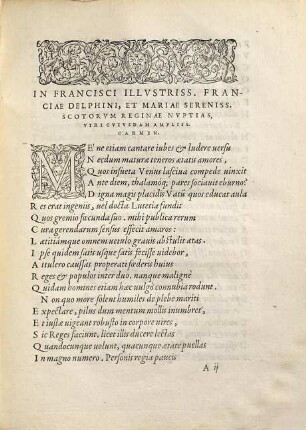 IN FRANCISCI ILLVSTRISS. FRAN-
CIAE DELPHINI, ET MARIAE SERENISS.
SCOTORVM REGINAE NVPTIAS,
VIRI CVIVSDAM AMPLISS.
CARMEN.
ME'ne etiam cantare iubes & ludere versu
Necdum matura teneros ætatis amores,
Quos insueta Venus lasciua compede vinxit
Ante diem, thalamóq; pares sociauit eburno?
Digna magis placidis Vatũ quos educat aula
Res erat ingeniis, vel docta Lutetia fundit
Quos gremio fœcunda suo. mihi publica rerum
Cura gerendarum sensus effecit amaros:
Lætitiámque omnem vultu grauis abstulit ætas.
Ipse quidem satis usque satis fecisse videbor,
A tulero excussas properati fœderis huius
Reges & populos inter duo, nanque maligné
Quidam homines etiam hæc vulgò connubia rodunt.
Non quo more solent humiles de plebe mariti
Expectare, pilus dum mentum mollis inumbret,
Et iustæ vigeant robusto in corpore vires,
Sic Reges faciunt. licet illis ducere lectas
Quandocunque volunt, quacunque ætate puellas
In magno numero. Personis regia paucis
A ij